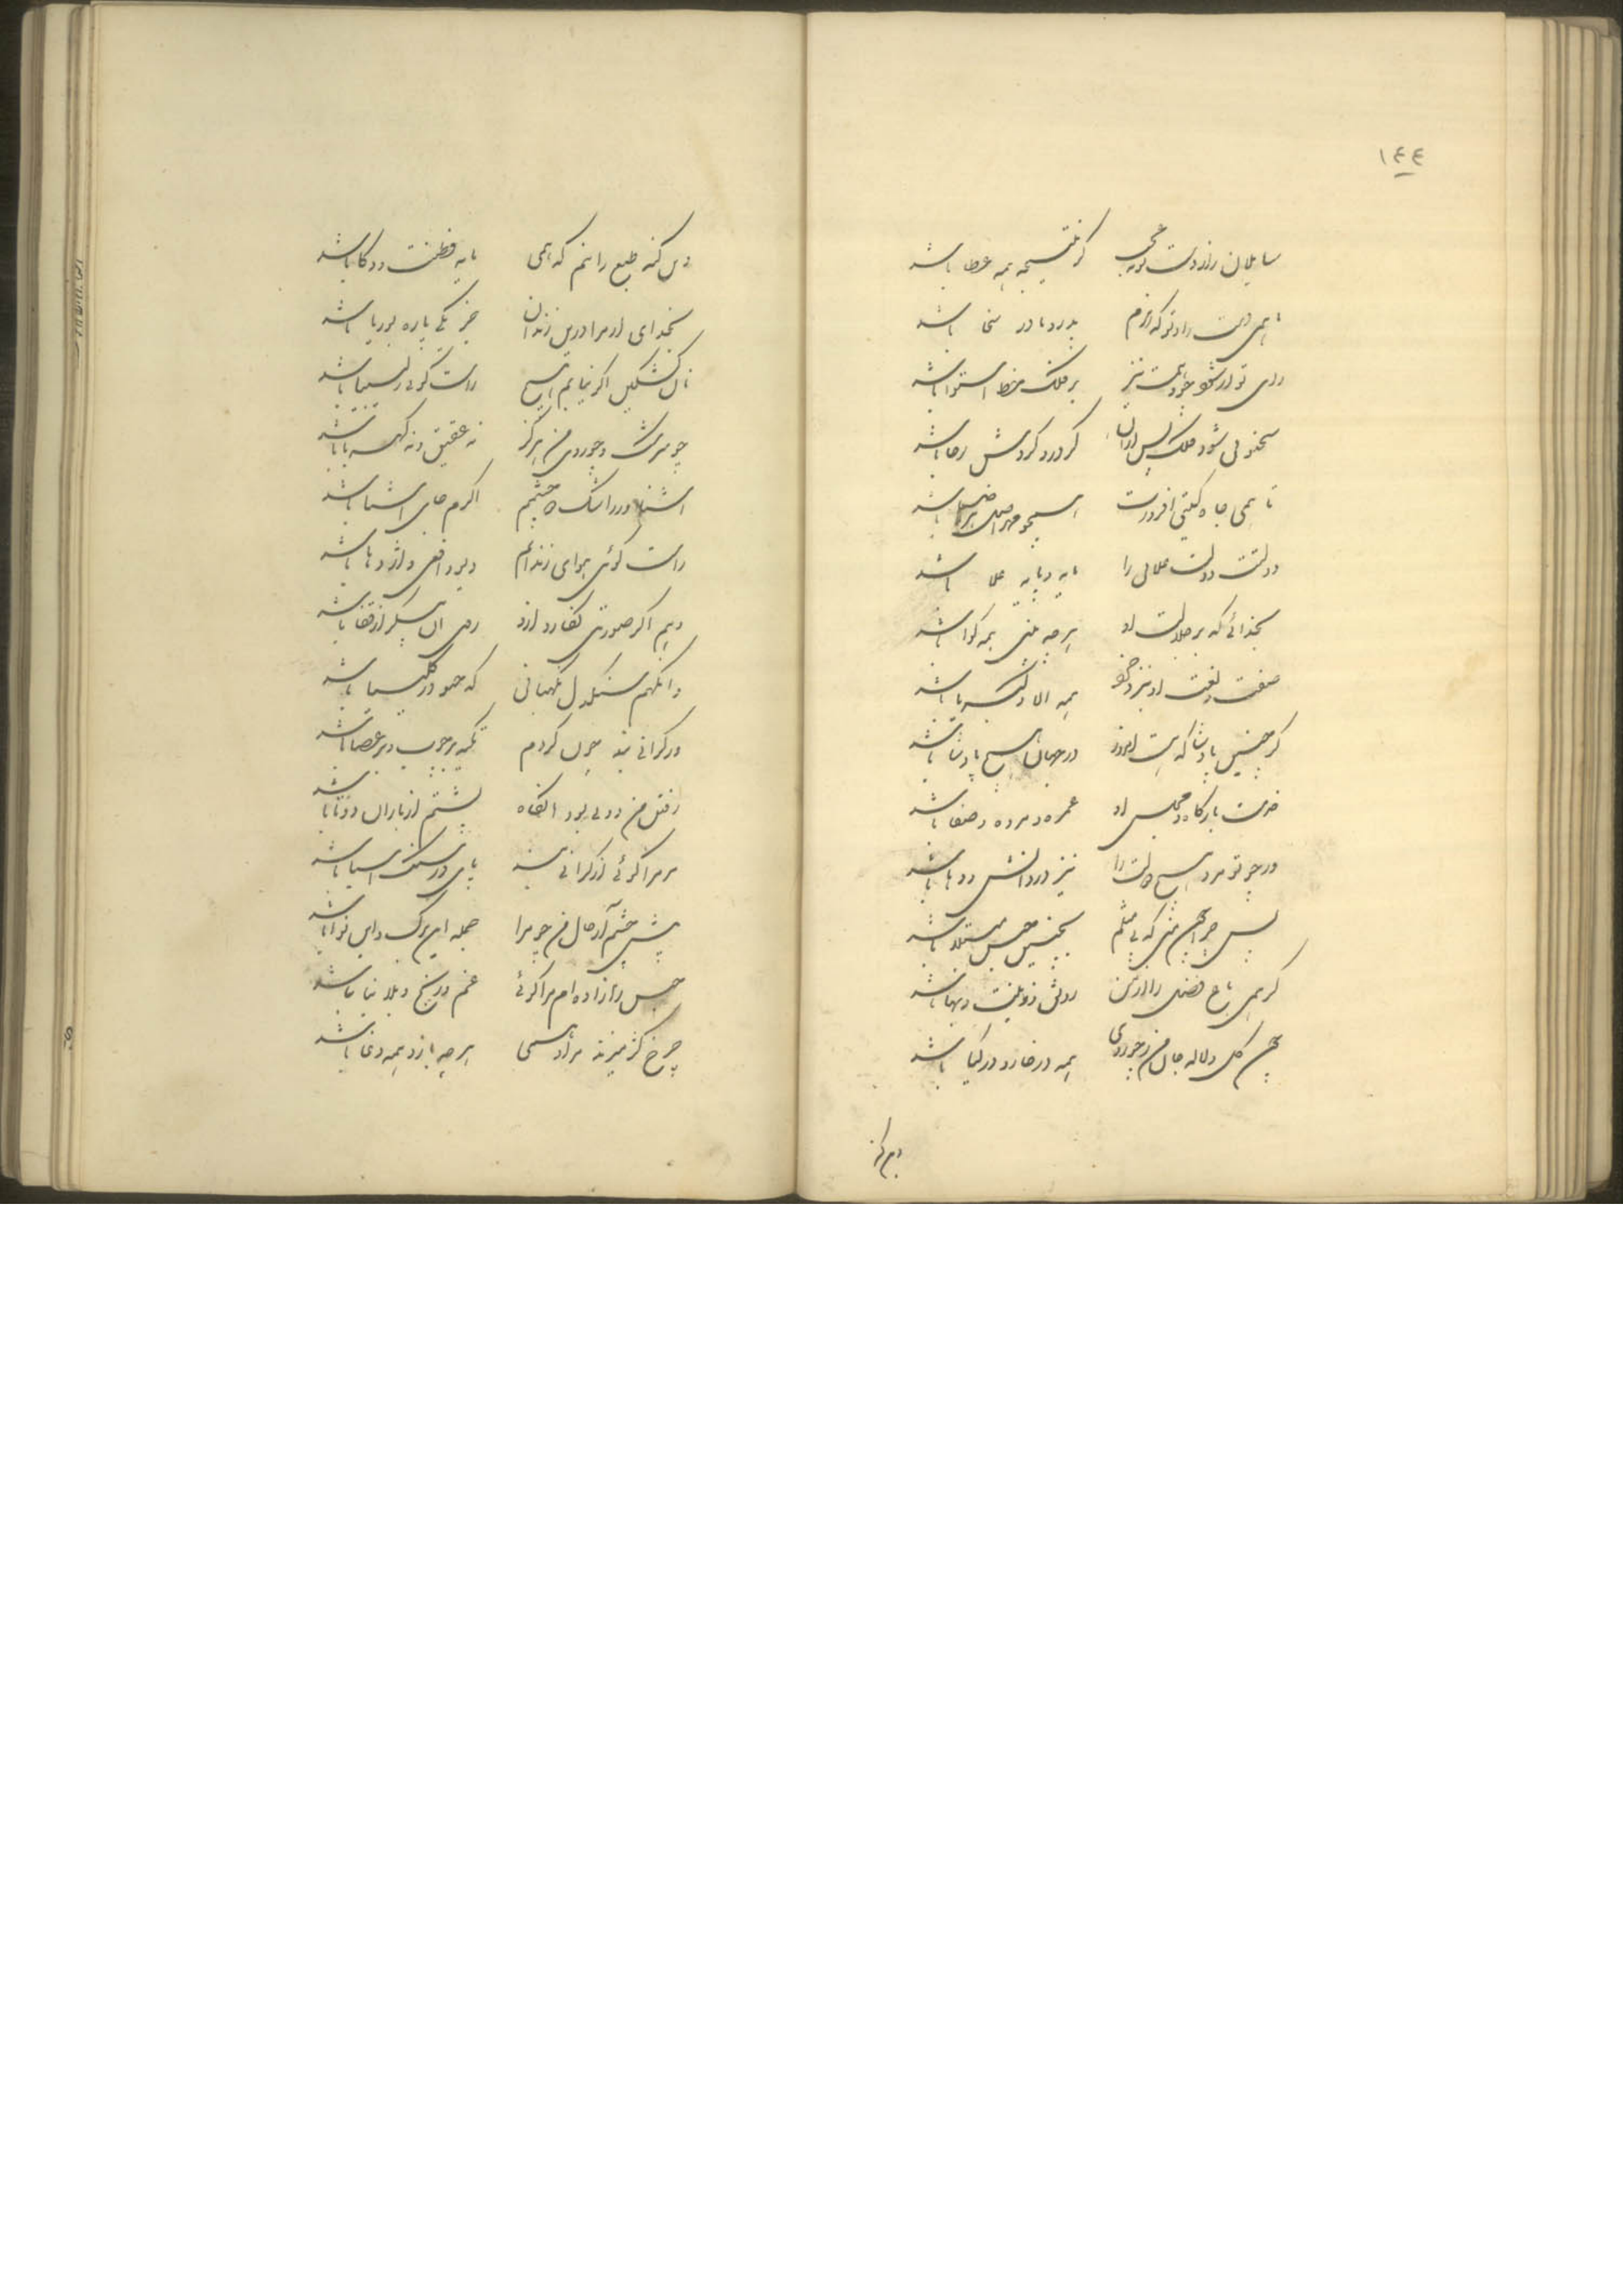 ١٤٤
سایلان را ز دست تو نه عجب گر نتیجه همه عطا باشد
با همی دست راد تو که رزم بدره با در سخا باشد
رای تو از شکوه خود نیز بر فلک خط استوا باشد
شود فلک پس از آن گردد گردش رحا باشد
تا همی جاه گیتی افروزت همچو مهر اصل هر ضیا باشد
دولتت دولت علائی را مایه و پایه علا باشد
بخدائی که بر جلالت او هر چه بینی همه گوا باشد
صفت و نعت او بنزد خرد همه الا و کبریا باشد
گر چنین پادشا که هست امروز در جهان هیچ پادشا باشد
حضرت بارگاه و مجلس او عمره و مروه و صفا باشد
ور چو تو مرد هیچ دولت را نیز در دانش و دها باشد
پس چرا چون منی که بی مثلم بچنین حبس مبتلا باشد
گر همی باغ فضل را از من رونق و زینت و بها باشد
چون گل و لاله جان من ز چه روی همه در خار و در گیا باشد
دین کنه
وین کنه طبع را نهم که همی مایه فطنت و ذکا باشد
بخدای ار مرا درین زندان جز یکی پاره بوریا باشد
نان کشکین اگر بیابم هیچ راست گوئی زلیبیا باشد
چو سرشک و چو روی من هرگز نه عقیق و نه کهربا باشد
آشنا در اشک دو چشم اگرم جای آشنا باشد
راست گوئی هوای زندانم دیو و افعی و اژدها باشد
وهم اگر صورتی نگارد ازو روی آن پیکر از قفا باشد
وانگهم سنگدل نگهبانی که چو در کلیسیا باشد
ور گرانی بند چون گردم تکیه بر چوب و بر عصا باشد
رفتن من دو پی بود انگاه پشتم از بار آن دو تا باشد
مر مرا گوئی از گرانی بند پای در سنگ آسیا باشد
پیش چشم آر حال من چو مرا جمله این برگ و این نوا باشد
حبس را زاده ام مرا گوئی غم و رنج و بلا نیا باشد
چرخ کژ میزند مرا و همی هر چه بازد همه دغا باشد